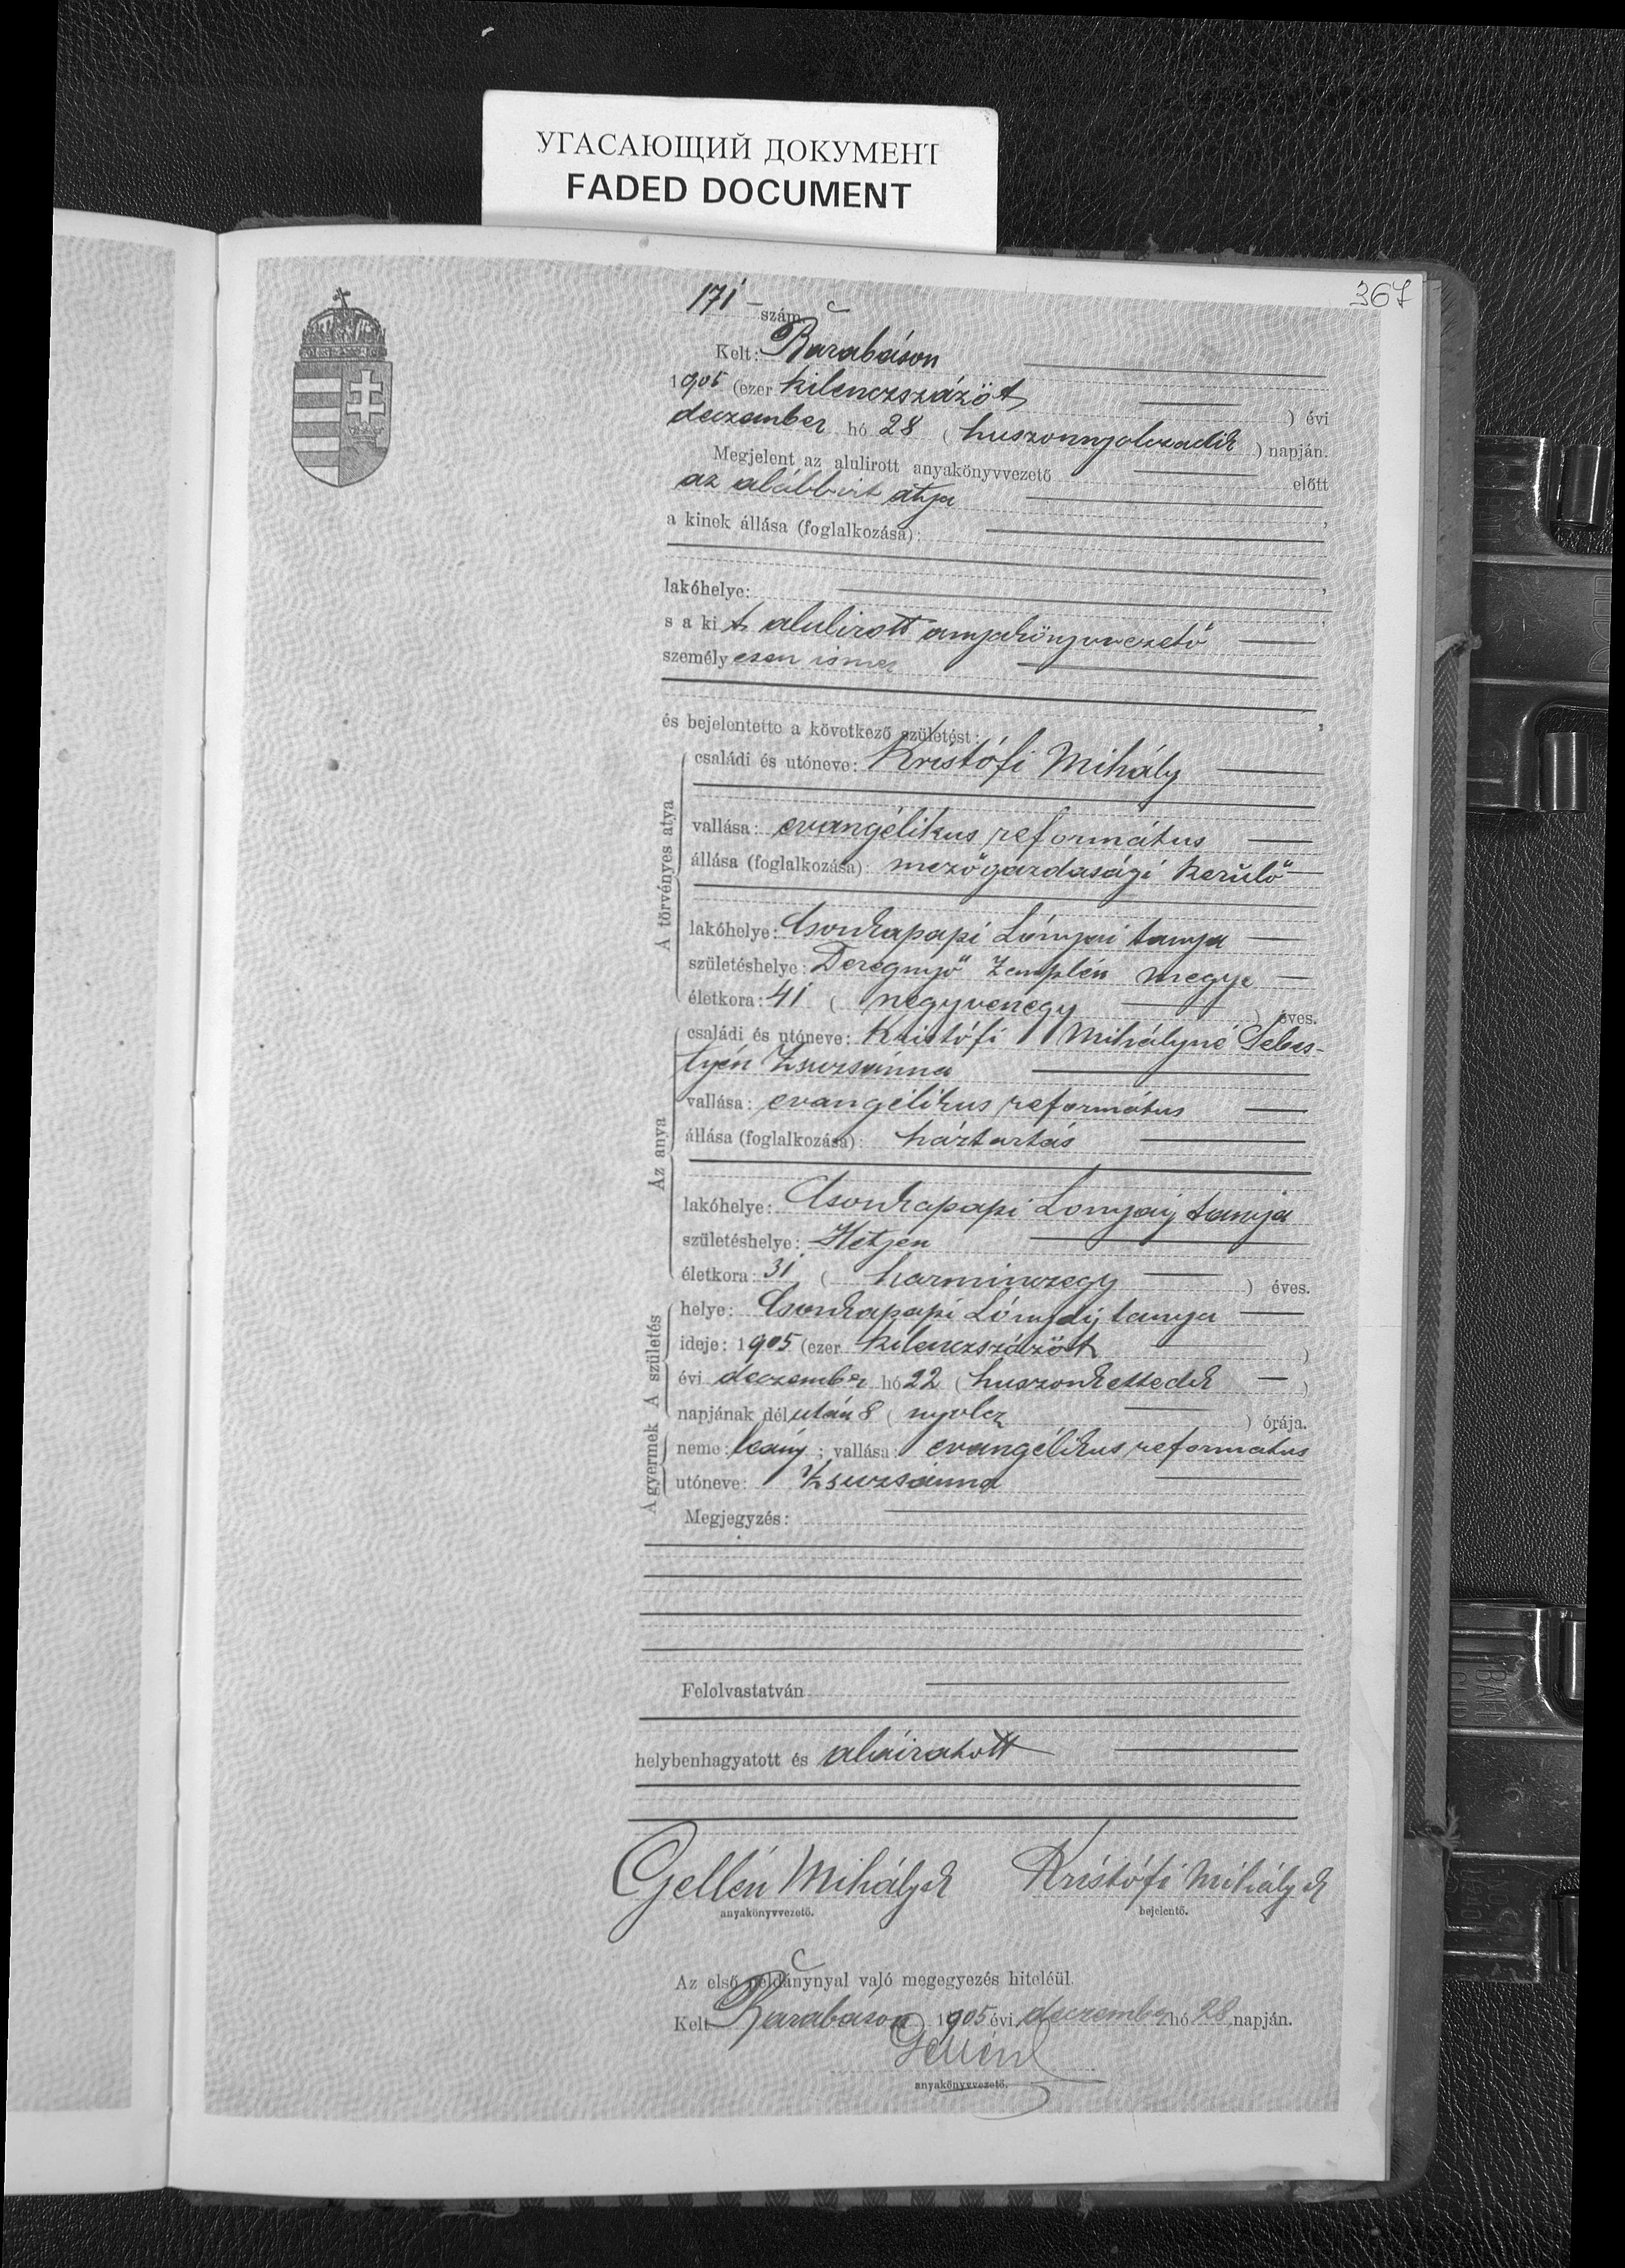 УГАСАЮЩИЙ ДОКУМЕНТ
FADED DOCUMENT
367
171 - szám.
Kelt: Barabáson
1905 (ezer kilenczszázöt ) évi
deczember hó 28 (huszonnyolczadik) napján.
Megjelent az alulirott anyakönyvvezető előtt
az alábbirt atya
a kinek állása (foglalkozása):
lakóhelye:
s a kit alulirott anyakönyvvezető
személyesen ismer
és bejelentette a következő születést:
A törvényes atya
családi és utóneve: Kristófi Mihály
vallása: evangélikus református
állása (foglalkozása): mezőgazdasági kerülő
lakóhelye: Csonkapapi Lónyai tanya
születéshelye: Deregnyő Zemplén megye
életkora: 41 (negyvenegy ) éves.
Az anya
családi és utóneve: Kristófi Mihályné Sebes-
tyén Zsuzsánna
vallása: evangélikus református
állása (foglalkozása): háztartás
lakóhelye: Csonkapapi Lonyay tanya
születéshelye: Hetyen
életkora: 31 (harminczegy ) éves.
A születés
helye: Csonkapapi Lónyay tanya
ideje: 1905 (ezer kilenczszázöt )
évi deczember hó 22 (huszonkettedik )
napjának délután 8 (nyolcz ) órája.
A gyermek
neme: leány; vallása: evangélikus református
utóneve: Zsuzsánna
Megjegyzés:
Felolvastatván
helybenhagyatott és aláiratott
Gellén Mihály k Kristófi Mihály k
anyakönyvvezető. bejelentő.
Az első példánynyal való megegyezés hiteléül.
Kelt Barabáson 1905 évi deczember hó 28 napján.
Gellén
anyakönyvvezető.